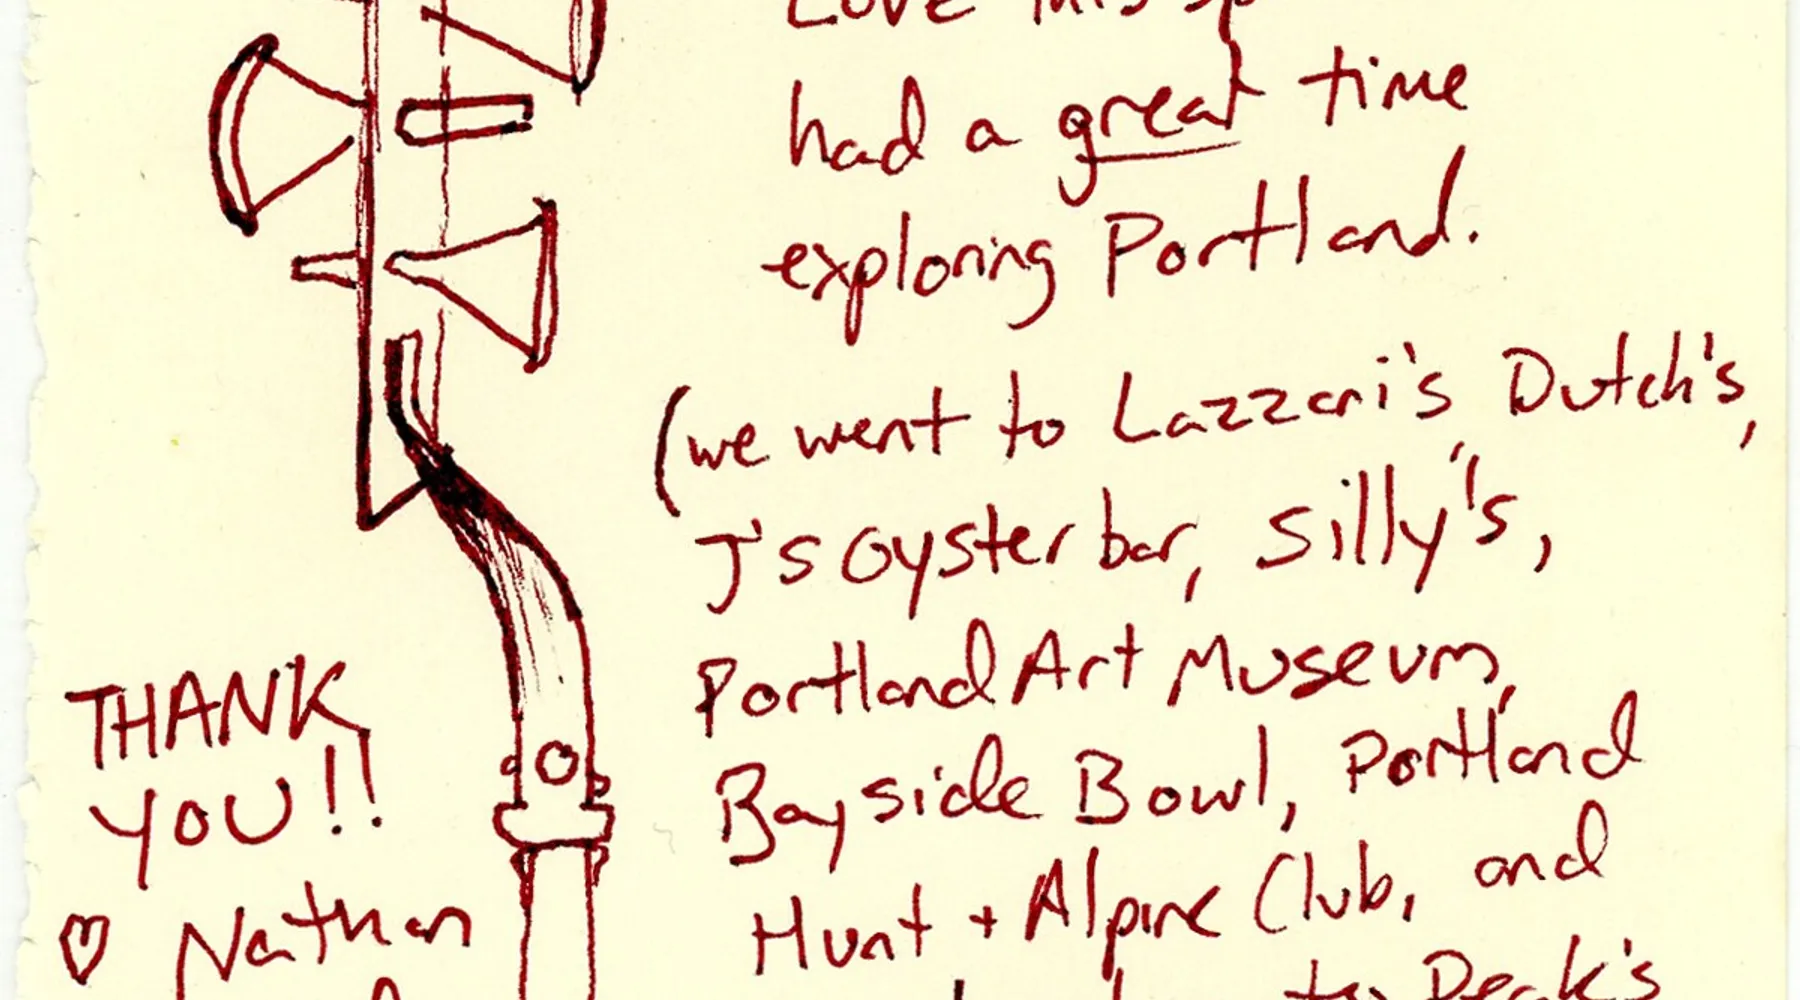 Love this
had a great time
exploring Portland.
(we went to Lazzari's, Dutch's,
J's Oyster bar, Silly's,
Portland Art Museum,
Bayside Bowl, Portland
Hunt + Alpine Club, and
to Peak's
THANK
YOU!!
♡ Nathan